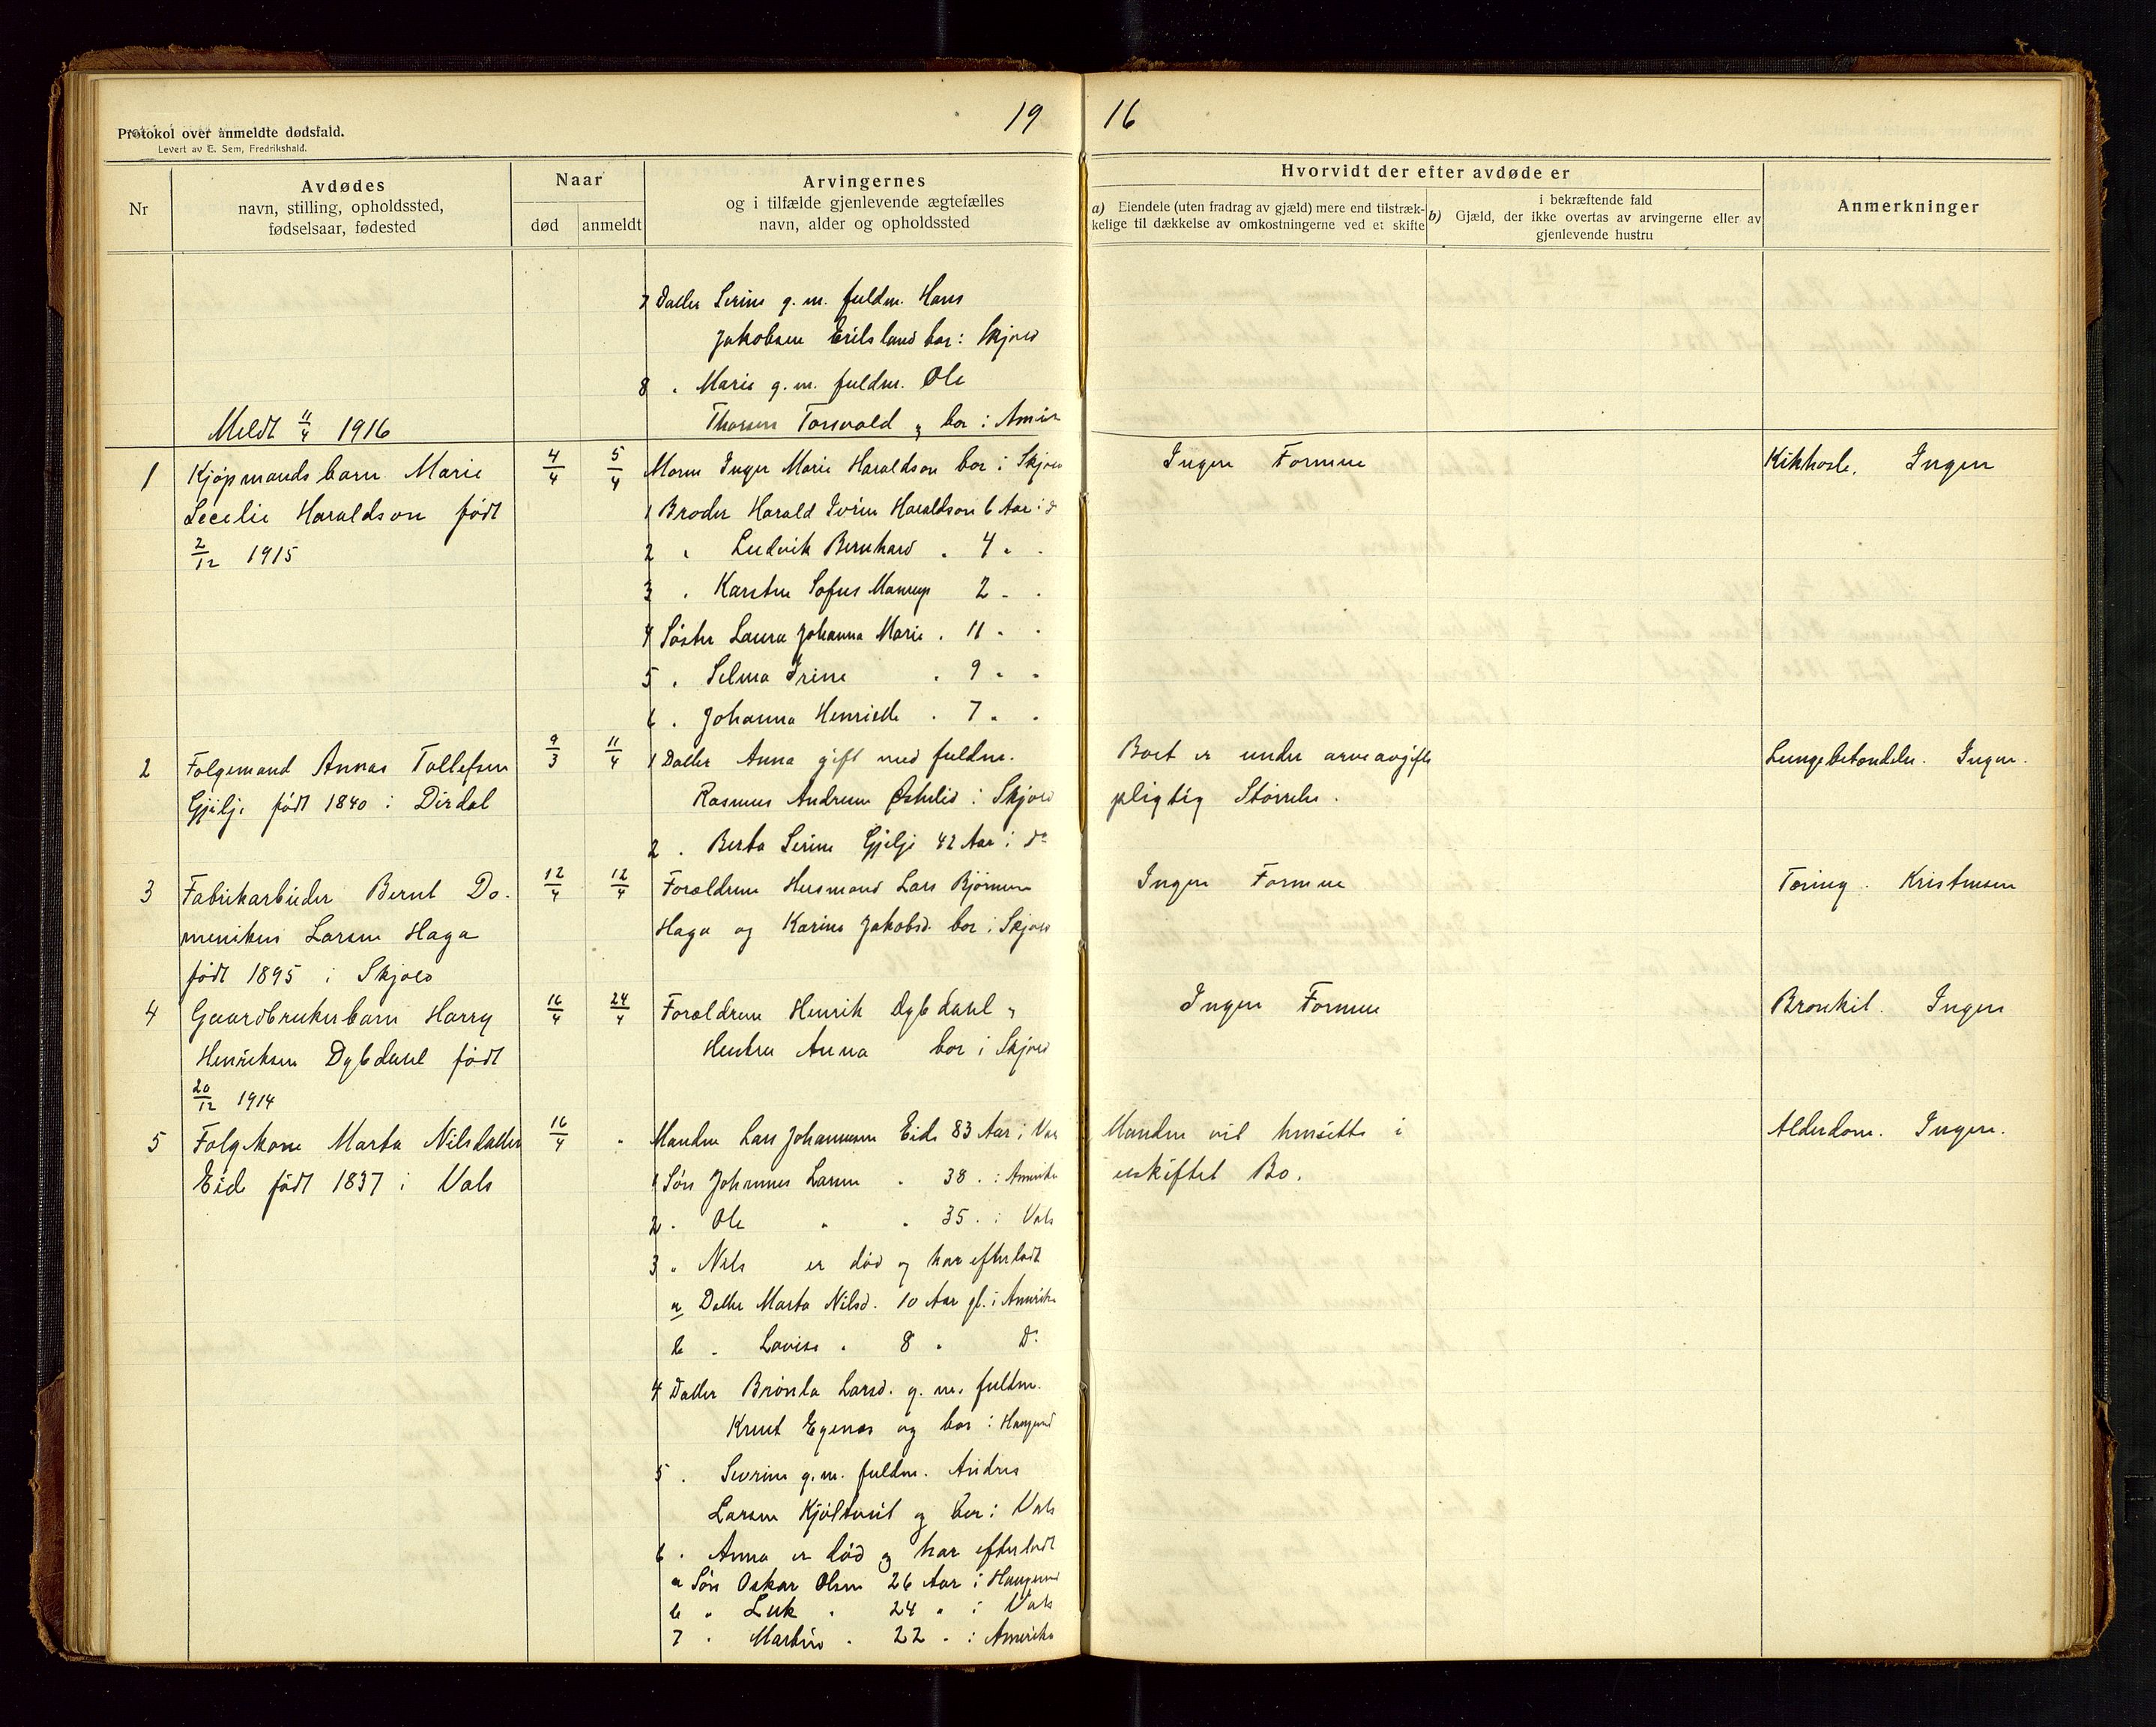 19 16
Protokol over anmeldte dødsfald.
Levert av E. Sem, Fredrikshald.
Nr
Avdødes
navn, stilling, opholdssted,
fødselsaar, fødested
Naar
død
anmeldt
Arvingernes
og i tilfælde gjenlevende ægtefælles
navn, alder og opholdssted
Hvorvidt der efter avdøde er
a) Eiendele (uten fradrag av gjæld) mere end tilstræk-
kelige til dækkelse av omkostningerne ved et skifte
i bekræftende fald
b) Gjæld, der ikke overtas av arvingerne eller av
gjenlevende hustru
Anmerkninger
7 Datter Serine g. m. fuldm. Hans
Jakobsen bor i Skjold
8 " Marie g. m. fuldm. Ole
Thorsen Torsvold, bor i Amer
Meldt 11/4 1916
1 Kjøpmandsbarn Marie
Cecelie Haraldson født
2/12 1915
4/4 5/4
Moren Inger Marie Haraldson bor i Skjold
1 Broder Harald Haraldson 6 Aar i do
2 " Ludvik Bernhard " 4 " "
3 " Karsten Sofus 2 " "
4 Søster Laura Johanna Marie " 11 " "
5 " Selma Irine " 9 " "
6 " Johanna Henriette " 7 " "
Ingen Formue
Kikhoste. Ingen
2 Folgemand Annas Tollefsen
Gjilje født 1840 i Dirdal
9/3 11/4
1 Datter Anna gift med fuldm.
Rasmus Andreas Østelid i Skjold
2 " Berta Serine Gjilje 42 Aar i do
Boet er under arveavgifts
pligtig Størrelse.
Lungebetændelse. Ingen.
3 Fabrikarbeider Bernt Do-
menikus Larsen Haga
født 1895 i Skjold
12/4 12/4
Forældrene Husmand Lars Bjørnsen
Haga og Karine Jakobsd. bor i Skjold
Ingen Formue
Tæring. Kristensen
4 Gaardbrukerbarn Harry
Henriksen Dybdahl født
20/12 1914
16/4 24/4
Forældrene Henrik Dybdahl og
Hustru Anna bor i Skjold
Ingen Formue
Bronkit. Ingen
5 Folgekone Marta Nilsdatter
Eid født 1837 i Vats
16/4 "
Manden Lars Johannesen Eide 83 Aar i Vats
1 Søn Johannes Larsen " 38 " i Amerika
2 " Ole " " 35 " i Vats
3 " Nils er død og har efterladt
a Datter Marta Nilsd. 10 Aar gl. i Amerika
b " Lovise " 8 " do
4 Datter Brønla Larsd. g. m. fuldm.
Knut Egenes og bor i Haugesund
5 " Sevrine g. m. fuldm. Andres
Larsen Kjøltveit og bor i Vats
6 " Anna er død og har efterladt
a Søn Oskar Olsen 26 Aar i Haugesund
b " Luk " 24 " i Vats
7 " Martin " 22 " i Amerika
Manden vil hensitte i
uskiftet Bo.
Alderdom. Ingen.